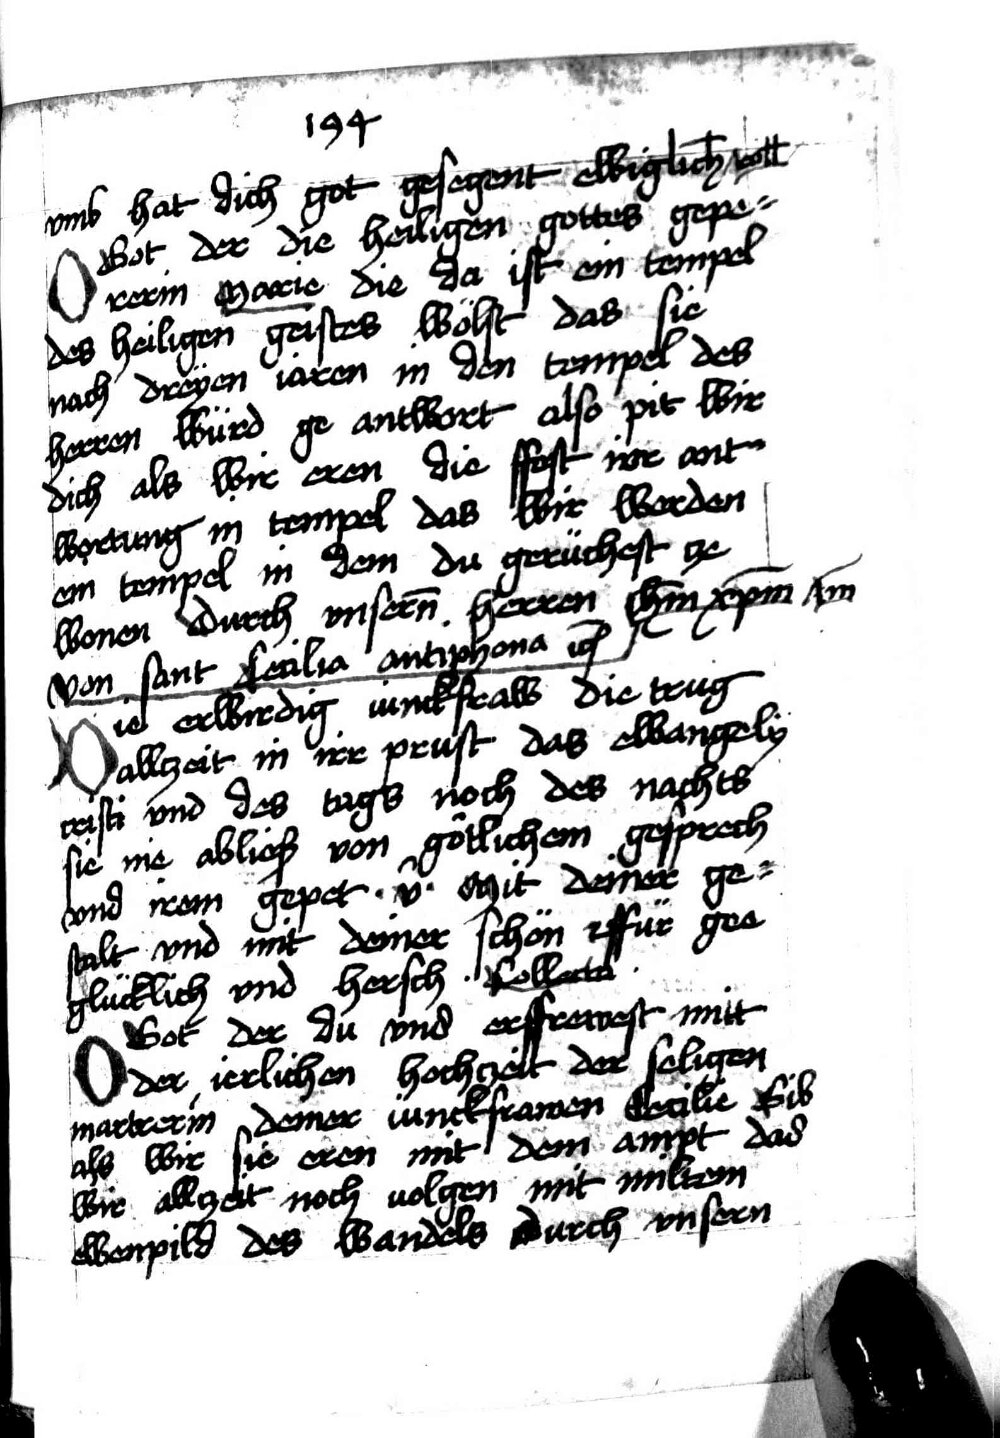 194
vmb hat dich got gesegent ewiglich coll
O Got der die heiligen gottes gepe=
rerin Marie die da ist ein tempel
des heiligen geistes wölst das sie
nach dreÿen iaren in den tempel des
herren würd ge antwort also pit wir
dich als wir eren die ffest irr ant=
wortung in tempel das wir werden
ein tempel in dem du gerüchest ze
wonen durch vnsern̄ herren ihm̄ xp̄m Am̄
Von sant Cecilia antiphona
Die erwirdig iunckfraw die trug
allczeit in irr prust das ewangely
cristi vnd des tags noch des nachts
sie nie abließ von götlichem gesprech
vnd irem gepet . v̄ . Mit deiner ge=
stalt vnd mit deiner schön ffür gee
glücklich vnd hersch . Collecta .
O Got der du vnd erffrewest mitt
der ierlichen hochczeit der seligen
martrerin deiner iunckfrawen Cecilie Gib
als wir sie eren mit dem ampt das
wir allczeit noch volgen mit miltem
ewenpild des wandels durch vnsern